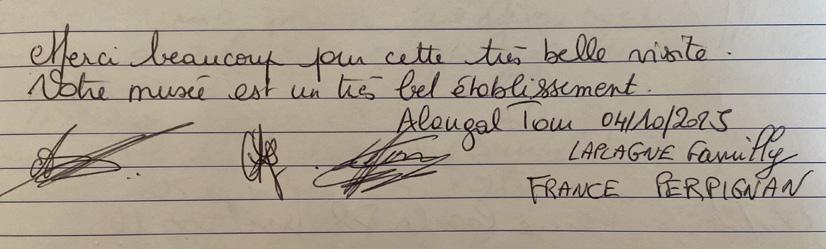 Merci beaucoup pour cette très belle visite.
Votre musée est un très bel établissement.
Alougal Tour 04/10/2025
LAPLAGNE Familly
FRANCE PERPIGNAN